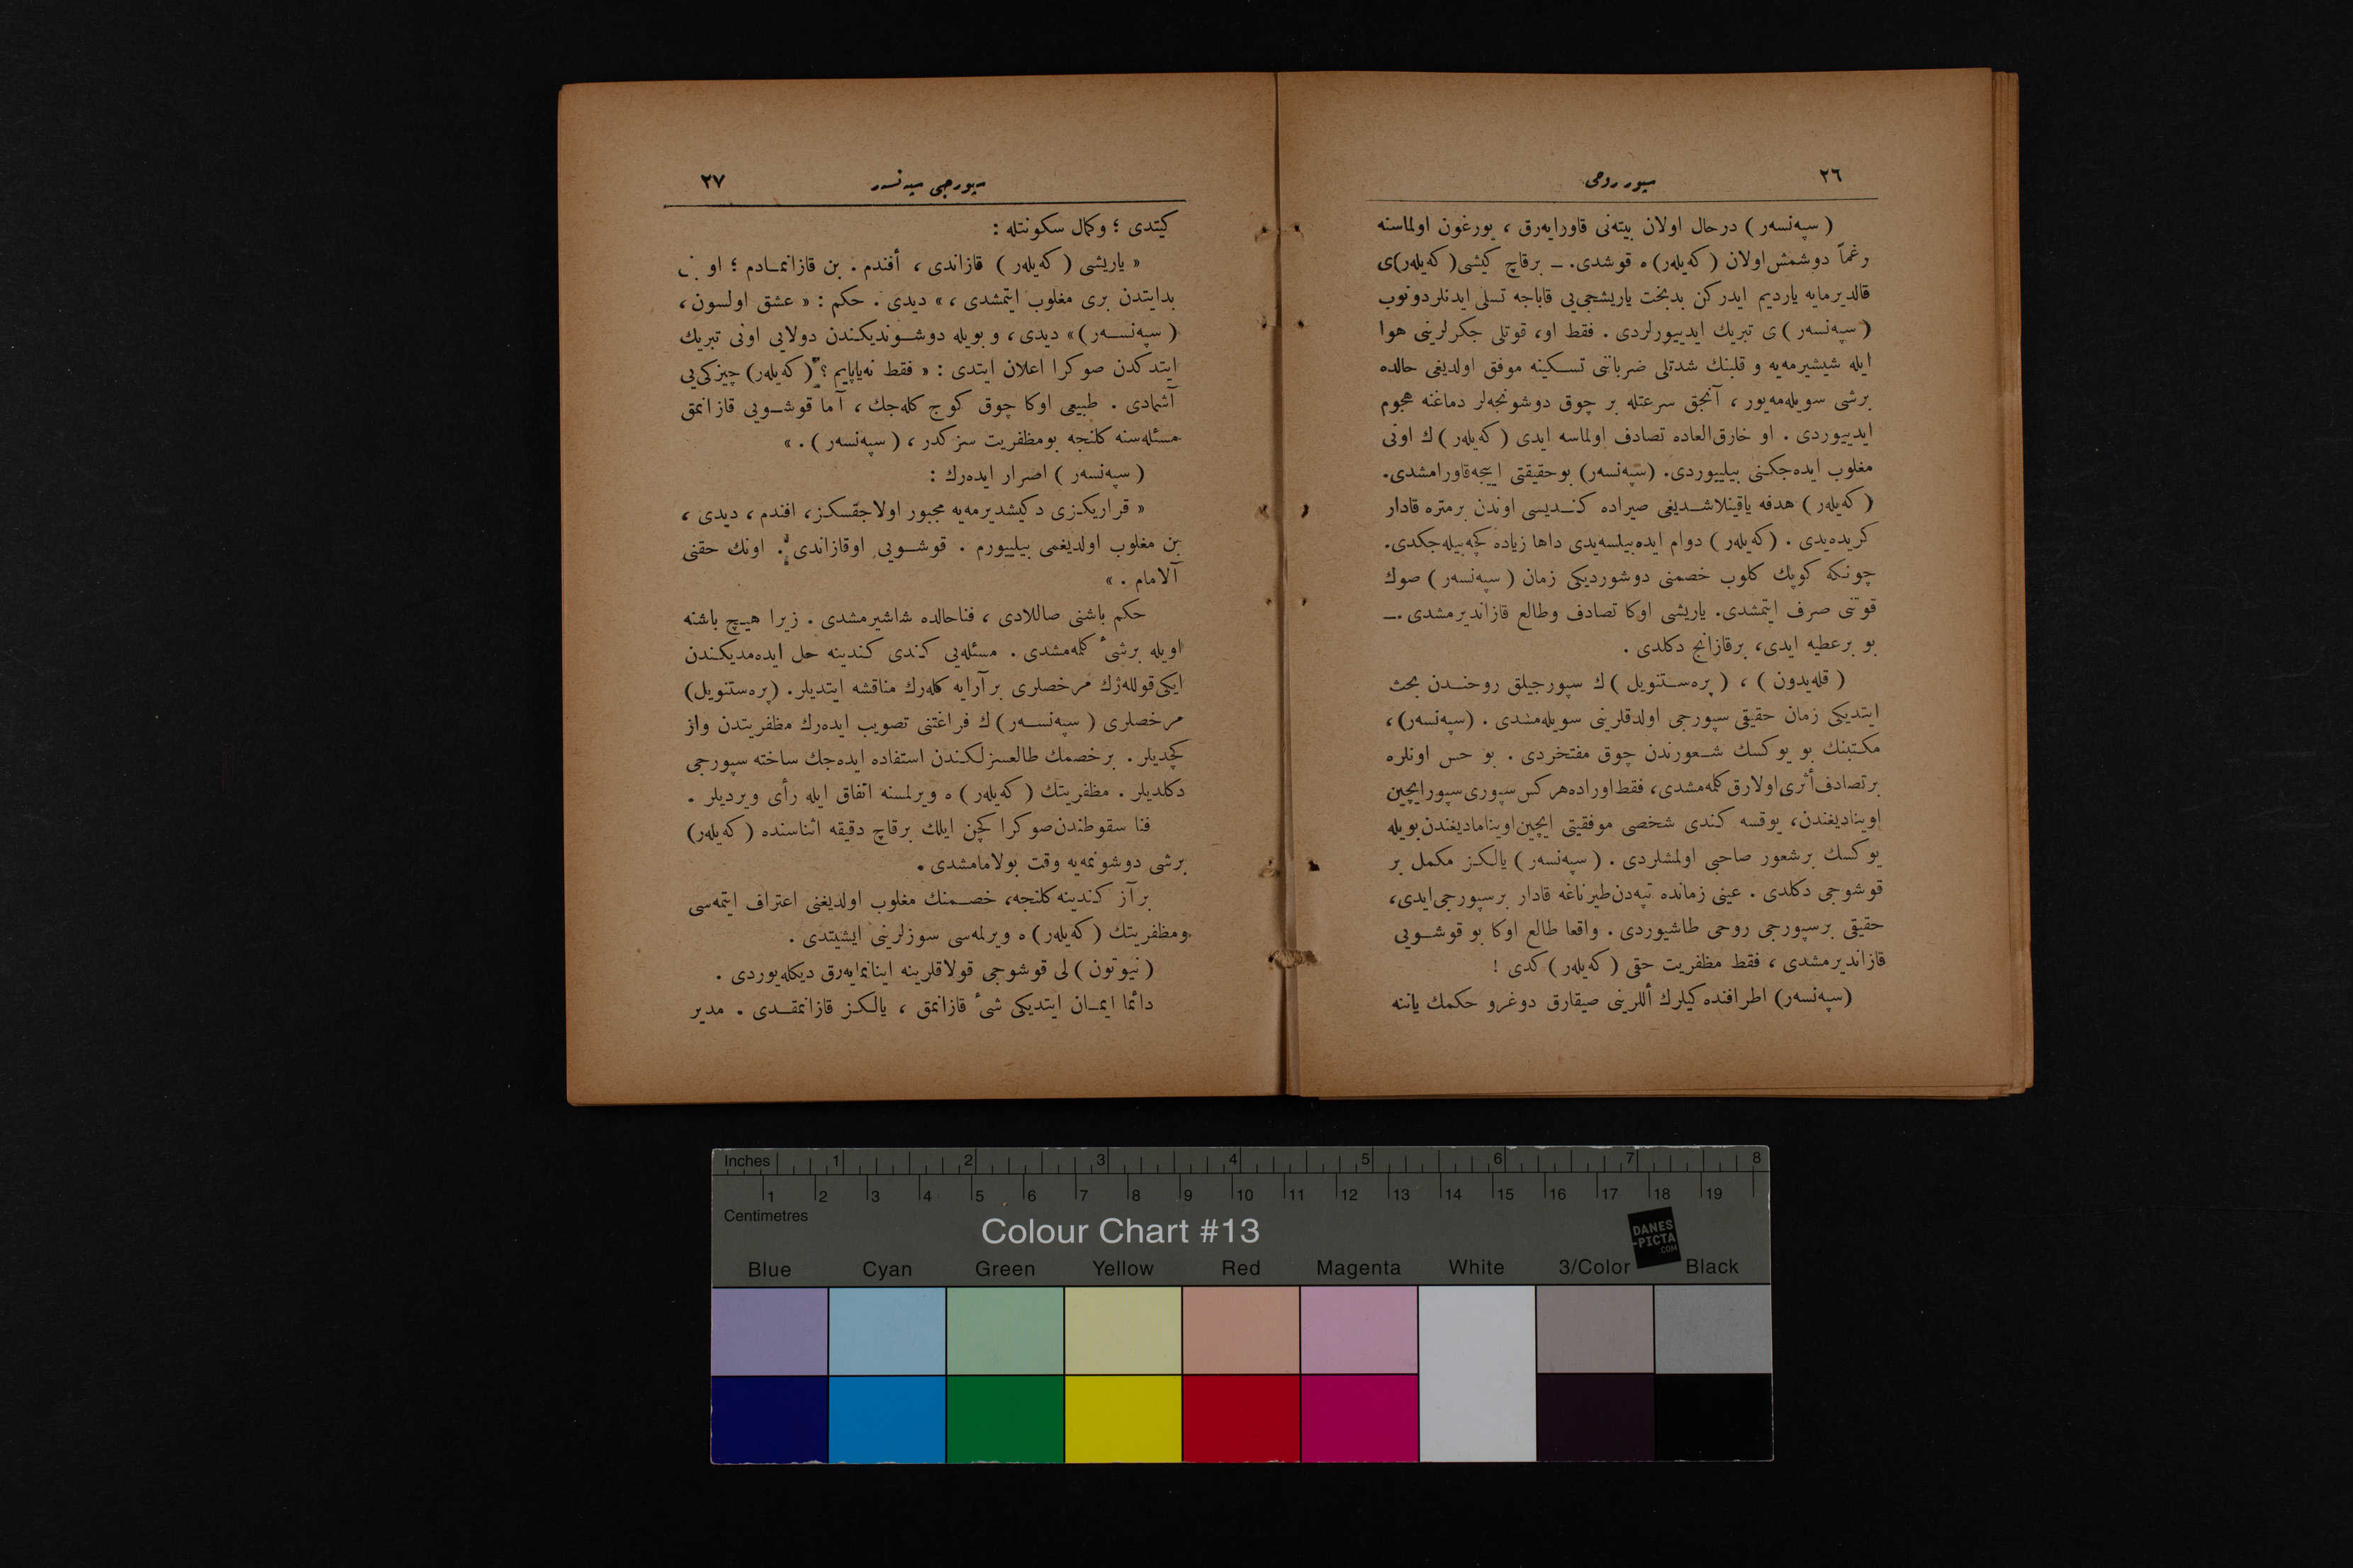 ٢٦
سپور روحی
( سپه‌نسه‌ر ) درحال اولان بیته‌نی قاورایه‌رق ، یورغون اولماسنه
رغماً دوشمش اولان ( که‌یله‌ر ) ه قوشدی. — برقاچ کیشی ( که‌یله‌ر )ی
قالدیرمایه یاردیم ایدرکن بدبخت یاریشجی‌یی قاباجه تسلی ایدنلر دونوب
( سپه‌نسه‌ر ) ی تبریك ایدییورلردی . فقط او، قوتلی جکرلرینی هوا
ایله شیشیرمه‌یه و قلبنك شدتلی ضرباننی تسکینه موفق اولدیغی حالده
برشی سویله‌مه‌یور ، آنجق سرعتله بر چوق دوشونجه‌لر دماغنه هجوم
ایدییوردی . او خارق‌العاده تصادف اولماسه ایدی ( که‌یله‌ر ) ك اونی
مغلوب ایده‌جکنی بیلییوردی. (سپه‌نسه‌ر) بوحقیقتی اییجه قاورامشدی.
( که‌یله‌ر ) هدفه یاقینلاشدیغی صیراده کندیسی اوندن برمتره قادار
کریده‌یدی . ( که‌یله‌ر ) دوام ایده‌بیلسه‌یدی داها زیاده کچه‌بیله‌جکدی.
چونکه کوپك کلوب خصمنی دوشوردیکی زمان ( سپه‌نسه‌ر ) صوك
قوتنی صرف ایتمشدی. یاریشی اوکا تصادف وطالع قازاندیرمشدی .—
بو برعطیه ایدی، برقازانج دکلدی .
( قله‌یدون ) ، ( پره‌ستنویل ) ك سپورجیلق روحندن بحث
ایتدیکی زمان حقیقی سپورجی اولدقلرینی سویله‌مشدی . (سپه‌نسه‌ر) ،
مکتبنك بو یوکسك شعورندن چوق مفتخردی . بو حس اونلره
برتصادف أثری اولارق کلمه‌مشدی، فقط اوراده هرکس سپوری سپور ایچین
اوینادیغندن، یوقسه کندی شخصی موفقیتی ایچین اویناماديغندن بویله
یوکسك برشعور صاحبی اولمشلردی . ( سپه‌نسه‌ر ) یالکز مکمل بر
قوشوجی دکلدی . عینی زمانده تپه‌دن طیرناغه قادار برسپورجی ایدی،
حقیقی برسپورجی روحی طاشیوردی . واقعا طالع اوکا بو قوشویی
قازاندیرمشدی ، فقط مظفریت حقی ( که‌یله‌ر ) کدی !
(سپه‌نسه‌ر) اطرافنده کیلرك أللرینی صیقارق دوغرو حکمك یاننه
سپورجی سپه‌نسه‌ر
٢٧
کیتدی ؛ وکمال سکونتله :
« یاریشی ( که‌یله‌ر ) قازاندی ، أفندم . بن قازانمادم ؛ او
بدایتدن بری مغلوب ایتمشدی ، » دیدی . حکم : « عشق اولسون ،
( سپه‌نسه‌ر ) » دیدی ، و بویله دوشوندیکندن دولایی اونی تبریك
ایتدکدن صوکرا اعلان ایتدی : « فقط نه‌یاپایم ؟ ( که‌یله‌ر ) چیزکی‌یی
آشمادی . طبیعی اوکا چوق کوج کله‌جك ، آما قوشویی قازانمق
مسئله‌سنه کلنجه بومظفریت سزکدر ، ( سپه‌نسه‌ر ) . »
( سپه‌نسه‌ر ) اصرار ایده‌رك :
« قراریکزی دکیشدیرمه‌یه مجبور اولاجقسکز، افندم ، دیدی ،
بن مغلوب اولدیغمی بیلییورم . قوشویی اوقازاندی . اونك حقنی
آلامام . »
حکم باشنی صاللادی ، فناحالده شاشیرمشدی . زیرا هیچ باشنه
اویله برشیٔ کلمه‌مشدی . مسئله‌یی کندی کندینه حل ایده‌مدیکندن
ایکی قولله‌ژك مرخصلری برآرایه کله‌رك مناقشه ایتدیلر. (پره‌ستنویل)
مرخصلری ( سپه‌نسه‌ر ) ك فراغتنی تصویب ایده‌رك مظفریتدن واز
کچدیلر . برخصمك طالعسزلکندن استفاده ایده‌جك ساخته سپورجی
دکلدیلر . مظفریتك ( که‌یله‌ر ) ه ویرلمسنه اتفاق ایله رأی ویردیلر .
فنا سقوطندن صوکرا کچن ایلك برقاچ دقیقه اثناسنده ( که‌یله‌ر )
برشی دوشونمه‌یه وقت بولامامشدی .
برآز کندینه کلنجه، خصمنك مغلوب اولدیغنی اعتراف ایتمه‌سی
ومظفریتك ( که‌یله‌ر ) ه ویرلمه‌سی سوزلرینی ایشیتدی .
( نیوتون ) لی قوشوجی قولاقلرینه اینانمایه‌رق دیکله‌یوردی .
دائما ایمان ایتدیکی شیٔ قازانمق ، یالکز قازانمقدی . مدیر
Inches 1 2 3 4 5 6 7 8
1 2 3 4 5 6 7 8 9 10 11 12 13 14 15 16 17 18 19
Centimetres
Colour Chart #13
DANES
-PICTA
.COM
Blue Cyan Green Yellow Red Magenta White 3/Color Black